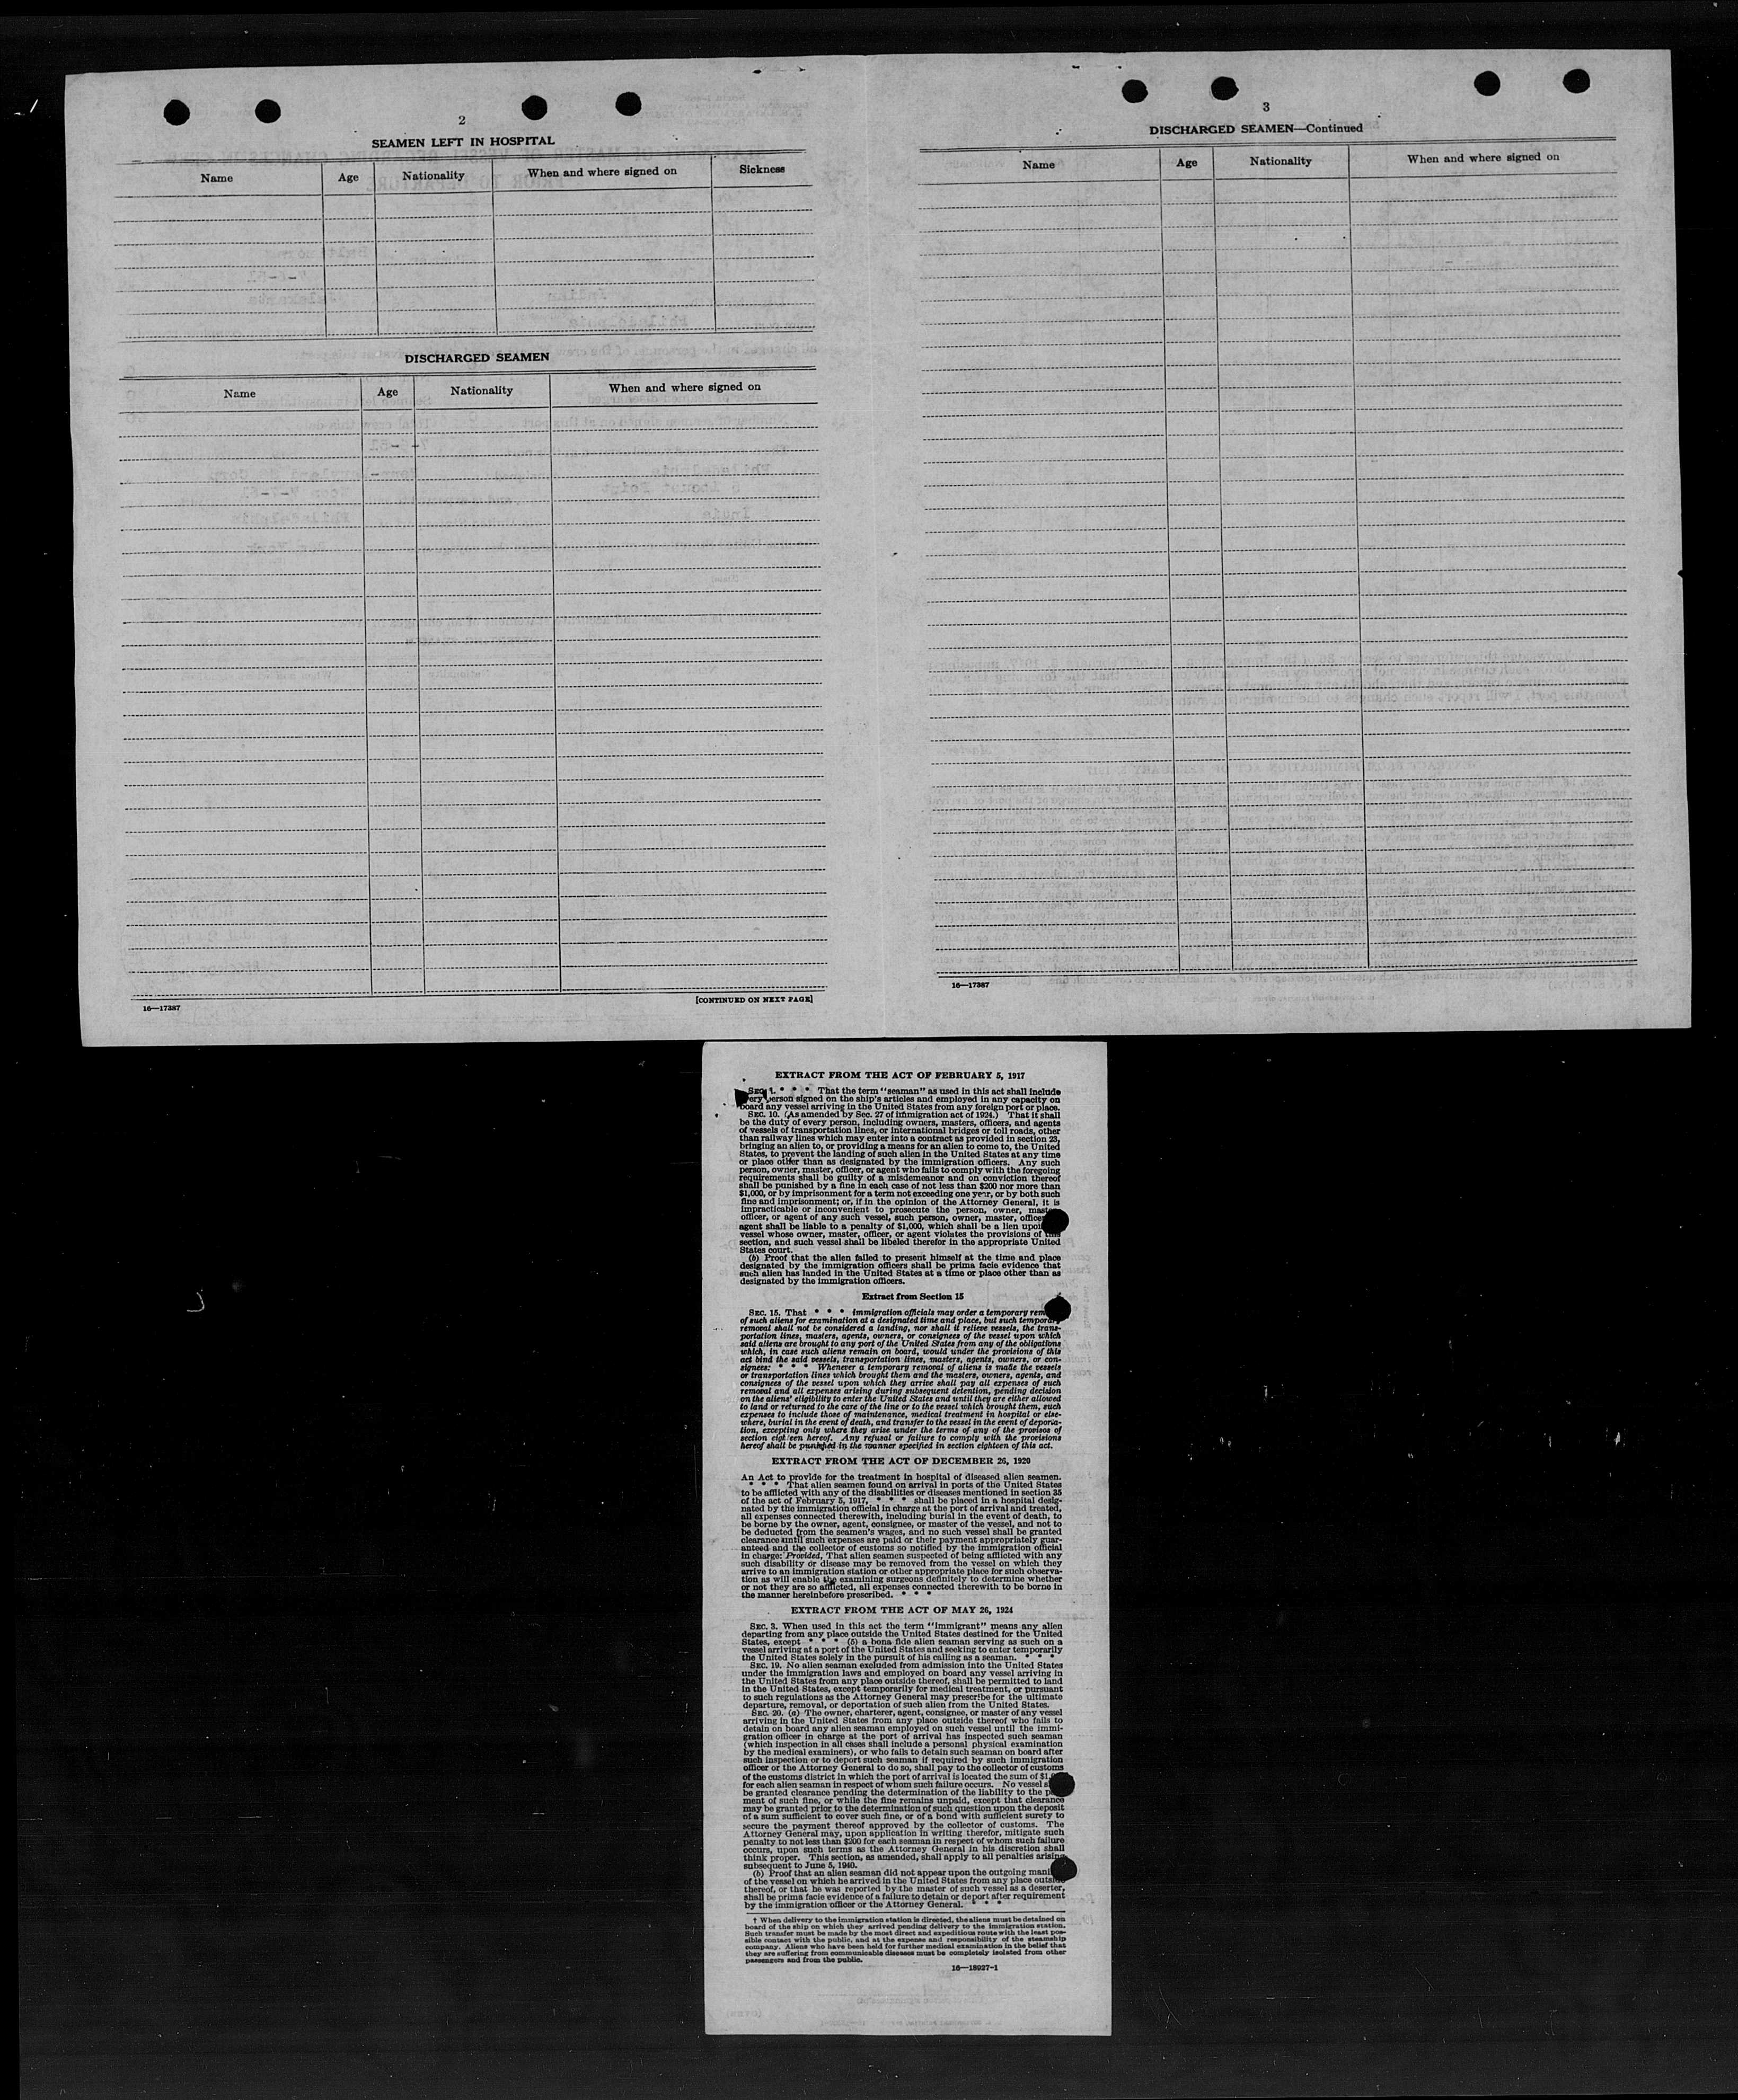 2
SEAMEN LEFT IN HOSPITAL
Name Age Nationality When and where signed on Sickness
DISCHARGED SEAMEN
Name Age Nationality When and where signed on
16—17387 [CONTINUED ON NEXT PAGE]
3
DISCHARGED SEAMEN—Continued
Name Age Nationality When and where signed on
16—17387
EXTRACT FROM THE ACT OF FEBRUARY 5, 1917
SEC. 1. * * * That the term "seaman" as used in this act shall include
person signed on the ship's articles and employed in any capacity on
board any vessel arriving in the United States from any foreign port or place.
SEC. 10. (As amended by Sec. 27 of immigration act of 1924.) That it shall
be the duty of every person, including owners, masters, officers, and agents
of vessels of transportation lines, or international bridges or toll roads, other
than railway lines which may enter into a contract as provided in section 23,
bringing an alien to, or providing a means for an alien to come to, the United
States, to prevent the landing of such alien in the United States at any time
or place other than as designated by the immigration officers. Any such
person, owner, master, officer, or agent who fails to comply with the foregoing
requirements shall be guilty of a misdemeanor and on conviction thereof
shall be punished by a fine in each case of not less than $200 nor more than
$1,000, or by imprisonment for a term not exceeding one year, or by both such
fine and imprisonment; or, if in the opinion of the Attorney General, it is
impracticable or inconvenient to prosecute the person, owner, master,
officer, or agent of any such vessel, such person, owner, master, officer
agent shall be liable to a penalty of $1,000, which shall be a lien upon
vessel whose owner, master, officer, or agent violates the provisions of this
section, and such vessel shall be libeled therefor in the appropriate United
States court.
(b) Proof that the alien failed to present himself at the time and place
designated by the immigration officers shall be prima facie evidence that
such alien has landed in the United States at a time or place other than as
designated by the immigration officers.
Extract from Section 15
SEC. 15. That * * * immigration officials may order a temporary
of such aliens for examination at a designated time and place, but such temporary
removal shall not be considered a landing, nor shall it relieve vessels, the trans-
portation lines, masters, agents, owners, or consignees of the vessel upon which
said aliens are brought to any port of the United States from any of the obligations
which, in case such aliens remain on board, would under the provisions of this
act bind the said vessels, transportation lines, masters, agents, owners, or con-
signees: * * * Whenever a temporary removal of aliens is made the vessels
or transportation lines which brought them and the masters, owners, agents, and
consignees of the vessel upon which they arrive shall pay all expenses of such
removal and all expenses arising during subsequent detention, pending decision
on the aliens' eligibility to enter the United States and until they are either allowed
to land or returned to the care of the line or to the vessel which brought them, such
expenses to include those of maintenance, medical treatment in hospital or else-
where, burial in the event of death, and transfer to the vessel in the event of deporta-
tion, excepting only where they arise under the terms of any of the provisos of
section eighteen hereof. Any refusal or failure to comply with the provisions
hereof shall be punished in the manner specified in section eighteen of this act.
EXTRACT FROM THE ACT OF DECEMBER 26, 1920
An Act to provide for the treatment in hospital of diseased alien seamen.
* * * That alien seamen found on arrival in ports of the United States
to be afflicted with any of the disabilities or diseases mentioned in section 35
of the act of February 5, 1917, * * * shall be placed in a hospital desig-
nated by the immigration official in charge at the port of arrival and treated,
all expenses connected therewith, including burial in the event of death, to
be borne by the owner, agent, consignee, or master of the vessel, and not to
be deducted from the seamen's wages, and no such vessel shall be granted
clearance until such expenses are paid or their payment appropriately guar-
anteed and the collector of customs so notified by the immigration official
in charge: Provided, That alien seamen suspected of being afflicted with any
such disability or disease may be removed from the vessel on which they
arrive to an immigration station or other appropriate place for such observa-
tion as will enable the examining surgeons definitely to determine whether
or not they are so afflicted, all expenses connected therewith to be borne in
the manner hereinbefore prescribed. * * *
EXTRACT FROM THE ACT OF MAY 26, 1924
SEC. 3. When used in this act the term "immigrant" means any alien
departing from any place outside the United States destined for the United
States, except * * * (5) a bona fide alien seaman serving as such on a
vessel arriving at a port of the United States and seeking to enter temporarily
the United States solely in the pursuit of his calling as a seaman. * * *
SEC. 19. No alien seaman excluded from admission into the United States
under the immigration laws and employed on board any vessel arriving in
the United States from any place outside thereof, shall be permitted to land
in the United States, except temporarily for medical treatment, or pursuant
to such regulations as the Attorney General may prescribe for the ultimate
departure, removal, or deportation of such alien from the United States.
SEC. 20. (a) The owner, charterer, agent, consignee, or master of any vessel
arriving in the United States from any place outside thereof who fails to
detain on board any alien seaman employed on such vessel until the immi-
gration officer in charge at the port of arrival has inspected such seaman
(which inspection in all cases shall include a personal physical examination
by the medical examiners), or who fails to detain such seaman on board after
such inspection or to deport such seaman if required by such immigration
officer or the Attorney General to do so, shall pay to the collector of customs
of the customs district in which the port of arrival is located the sum of
for each alien seaman in respect of whom such failure occurs. No vessel
be granted clearance pending the determination of the liability to the
ment of such fine, or while the fine remains unpaid, except that clearance
may be granted prior to the determination of such question upon the deposit
of a sum sufficient to cover such fine, or of a bond with sufficient surety to
secure the payment thereof approved by the collector of customs. The
Attorney General may, upon application in writing therefor, mitigate such
penalty to not less than $200 for each seaman in respect of whom such failure
occurs, upon such terms as the Attorney General in his discretion shall
think proper. This section, as amended, shall apply to all penalties arising
subsequent to June 5, 1940.
(b) Proof that an alien seaman did not appear upon the outgoing
of the vessel on which he arrived in the United States from any place outside
thereof, or that he was reported by the master of such vessel as a deserter,
shall be prima facie evidence of a failure to detain or deport after requirement
by the immigration officer or the Attorney General. * * *
† When delivery to the immigration station is directed, the aliens must be detained on
board of the ship on which they arrived pending delivery to the immigration station.
Such transfer must be made by the most direct and expeditious route with the least pos-
sible contact with the public, and at the expense and responsibility of the steamship
company. Aliens who have been held for further medical examination in the belief that
they are suffering from communicable diseases must be completely isolated from other
passengers and from the public.
16—18927-1